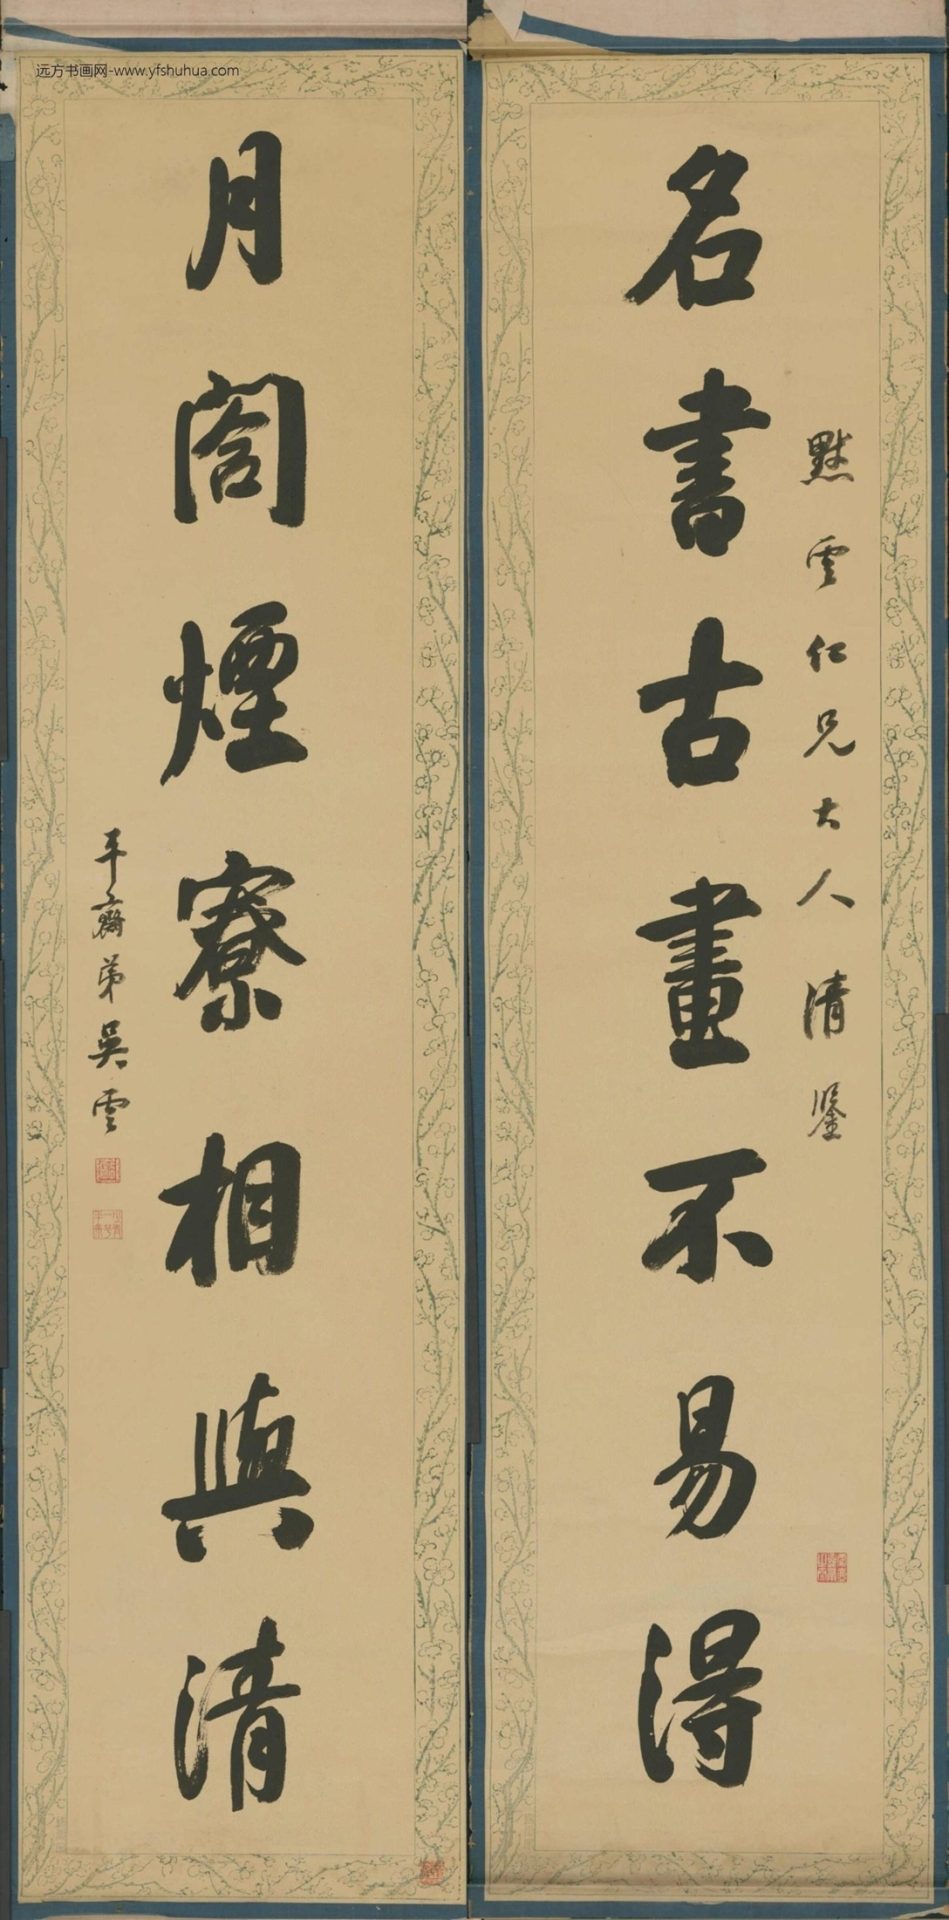 远方书画网-www.yfshuhua.com
默雲仁兄大人清鑒
名書古畫不易得
月閤煙寮相與清
平齋弟吳雲